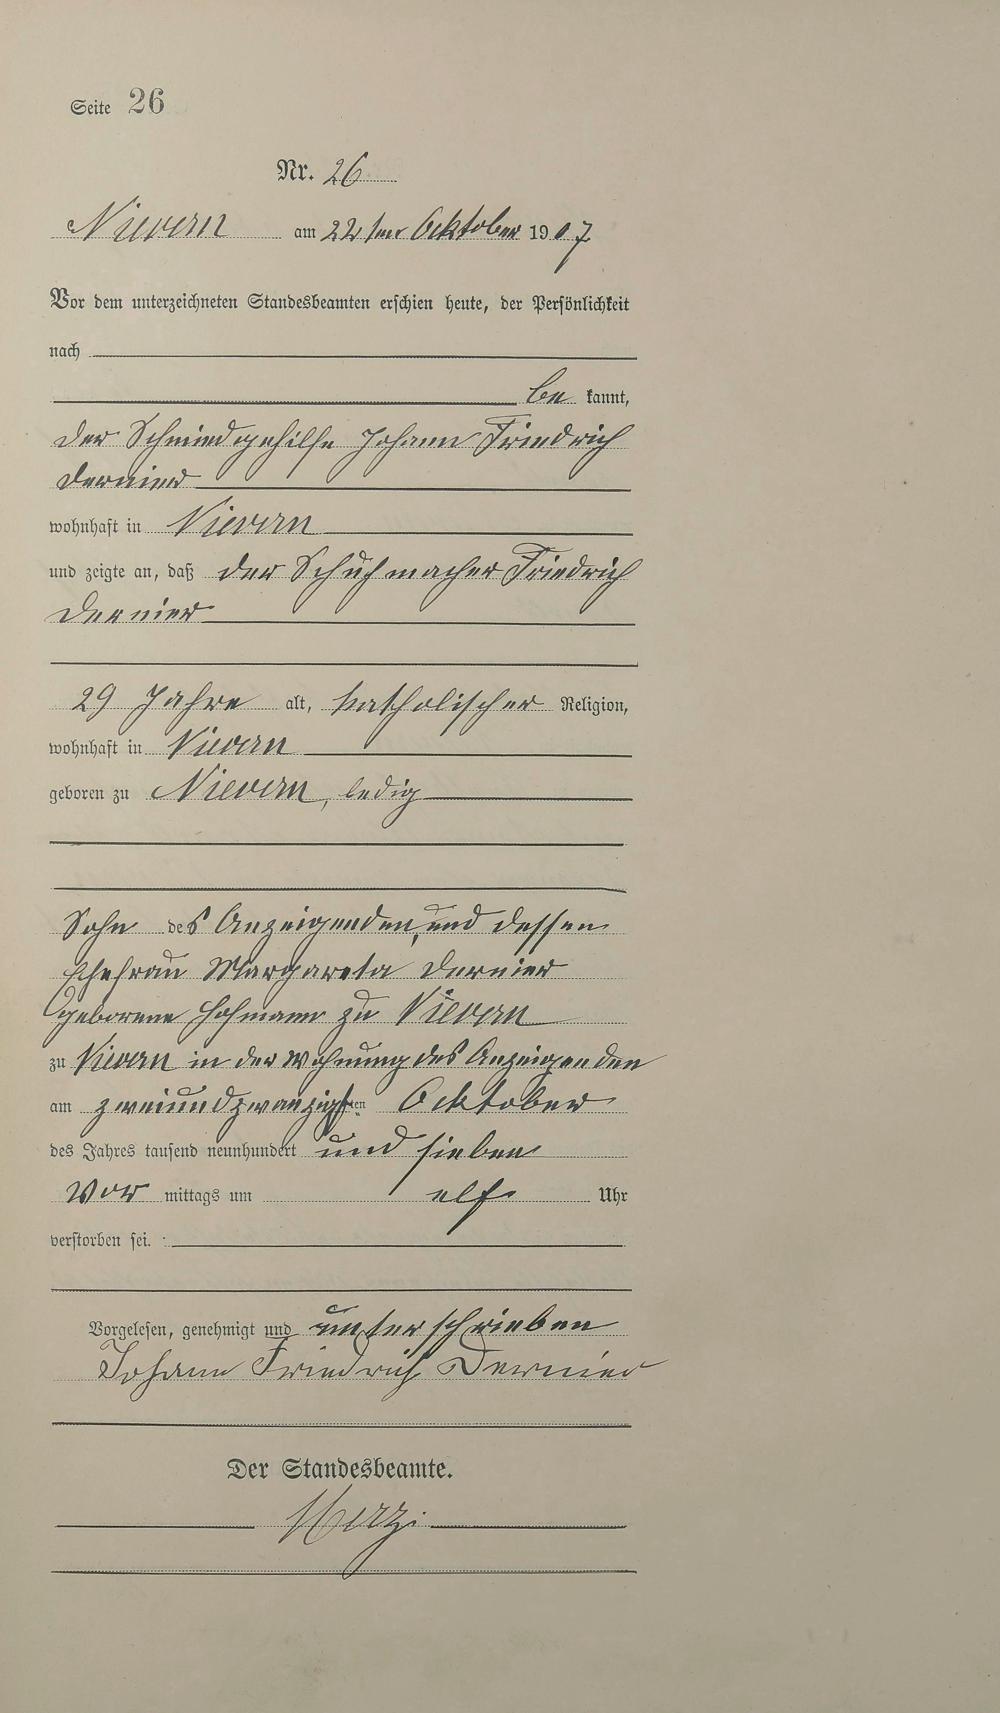 Seite 26
Nr. 26
Nievern am 22ten Ocktober 1907
Vor dem unterzeichneten Standesbeamten erschien heute, der Persönlichkeit
nach
be kannt,
der Schmiedgehilfe Johann Friedrich
Dernier
wohnhaft in Nievern
und zeigte an, daß der Schuhmacher Friedrich
Dernier
29 Jahre alt, katholischer Religion,
wohnhaft in Nievern
geboren zu Nievern, ledig
Sohn des Anzeigenden, und dessen
Ehefrau Margareta Dernier
geborene Hofmann zu Nievern
zu Nievern in der Wohnung des Anzeigenden
am zweiundzwanzigsten Ocktober
des Jahres tausend neunhundert und sieben
Vor mittags um elf Uhr
verstorben sei.
Vorgelesen, genehmigt und unterschrieben
Johann Friedrich Dernier
Der Standesbeamte.